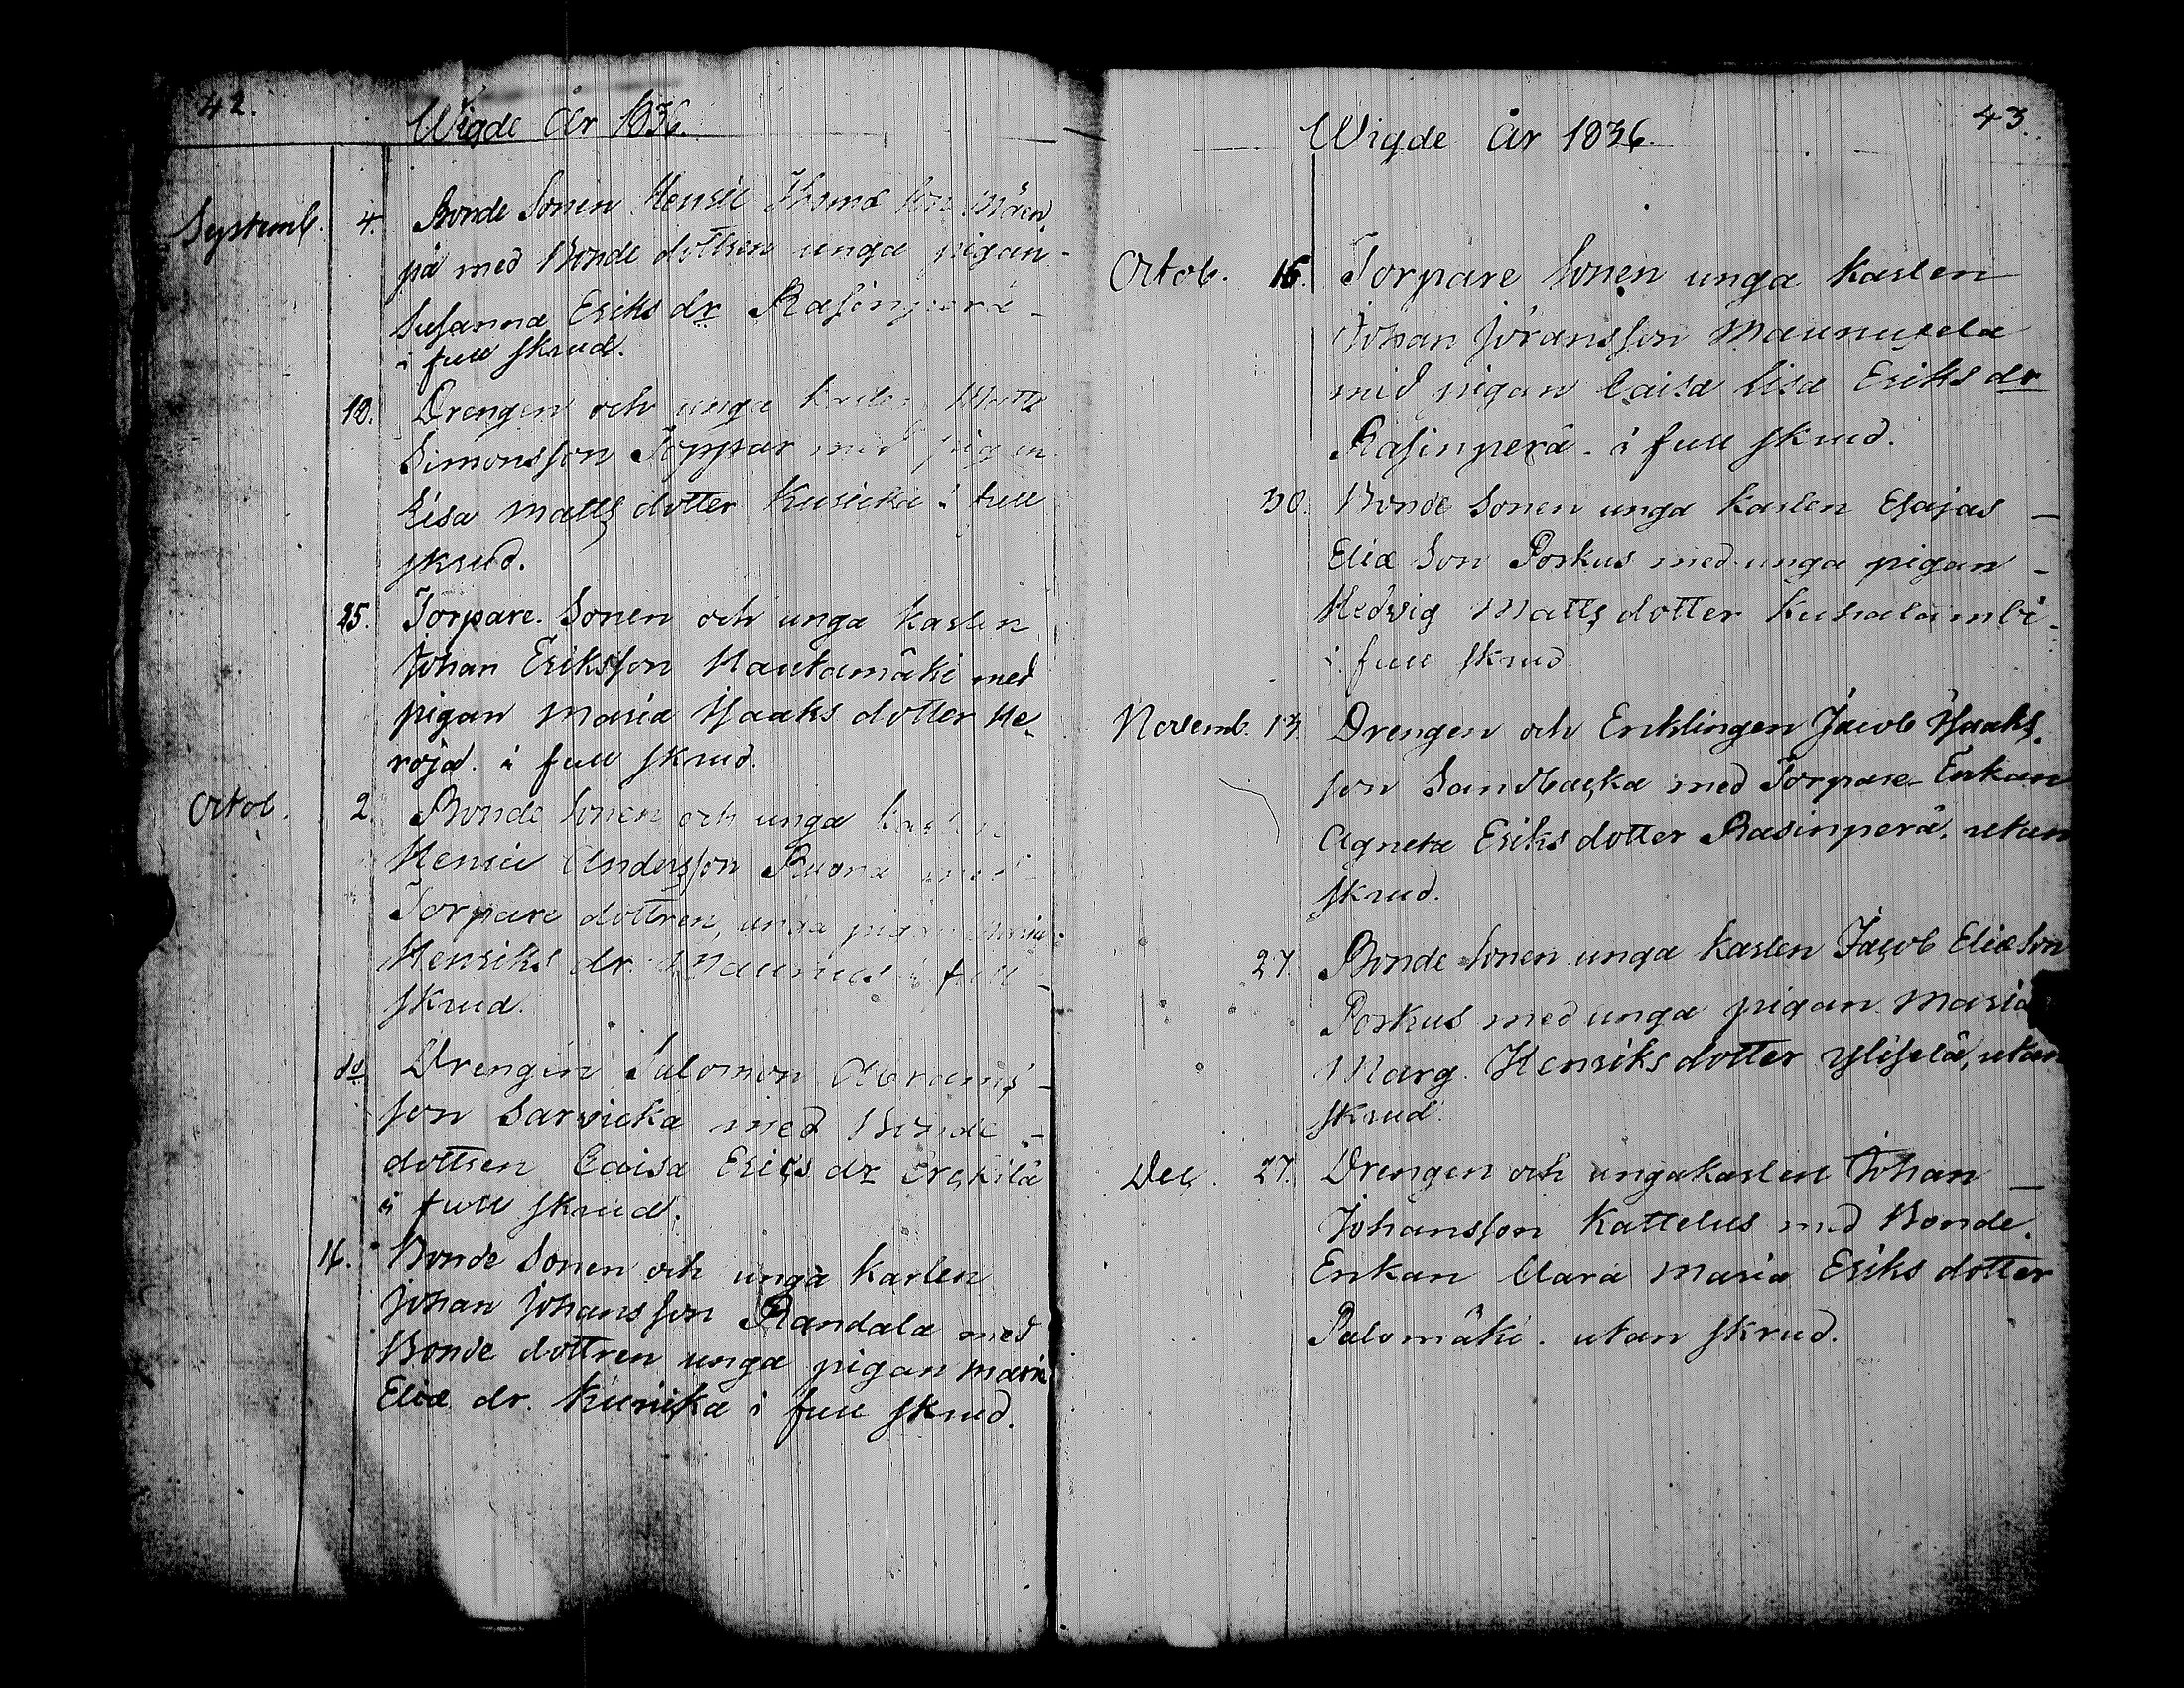 42.
Wigde År 1836.
Septemb. 4. Bonde Sonen Henric Thomæ Son Mäen
pä med Bonde dottren unga pigan -
Susanna Eriks dr Rasinperä -
i full skrud.
18. Drengen och unga karlen Matts
Simonsson Toppar med pigan
Lisa Matts dotter Kuricka i full
skrud.
25. Torpare Sonen och unga karlen
Johan Eriksson Hautamäki med
pigan Maria Isaaks dotter He
röjä. i full skrud.
Octob. 2. Bonde Sonen och unga karlen
Henric Andersson Ruona med
Torpare dottren, unga pigan Maria
Henriks dr. Maunus i full -
skrud.
do Drengen Salomon Abrams -
son Sarvicka med Bonde -
dottren Caisa Erics dr Erckilä
i full skrud.
16. Bonde Sonen och unga karlen
Johan Johansson Randala med
Bonde dottren unga pigan Maria
Eliæ dr. Kuricka i full skrud.
43.
Wigde År 1836.
Octob. 16. Torpare Sonen unga karlen
Johan Jöransson Maunusela
med pigan Caisa Lisa Eriks dr
Rasinperä. i full skrud.
30. Bonde Sonen unga karlen Esajas -
Eliæ Son Porkus med unga pigan -
Hedvig Matts dotter Kuhalambi -
i full skrud.
Novemb. 13. Drengen och Enklingen Jacob Isaaks
son Sandbacka med Torpare Enkan
Agneta Eriks dotter Rasinperä, utan
skrud.
27. Bonde Sonen unga karlen Jacob Eliæ Son
Porkus med unga pigan Maria
Marg. Henriks dotter Yliselä, utan
skrud.
Dec. 27. Drengen och unga karlen Johan -
Johansson Kattelus med Bonde
Enkan Clara Maria Eriks dotter
Palomäki. utan skrud.